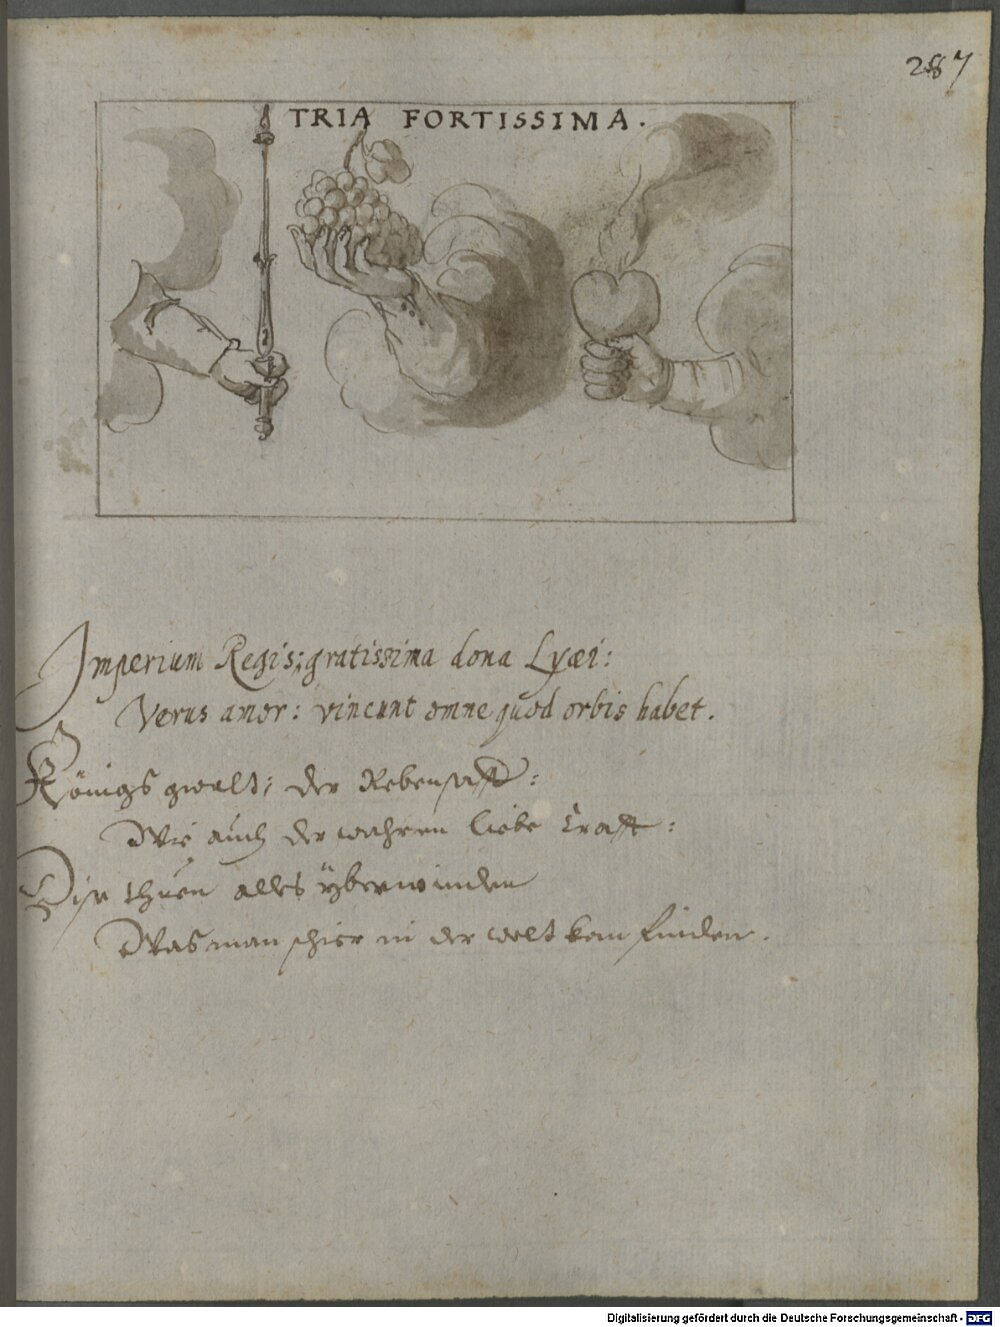 287
TRIA FORTISSIMA.
Imperium Regis; gratissima dona Lyæi:
Verus amor: vincunt omne quod orbis habet.
Königs gwalt; der Rebensafft:
Wie auch der wahren liebe krafft:
Dise thuen alles yberwinden
Was man schier in der welt kan finden.
Digitalisierung gefördert durch die Deutsche Forschungsgemeinschaft - DFG